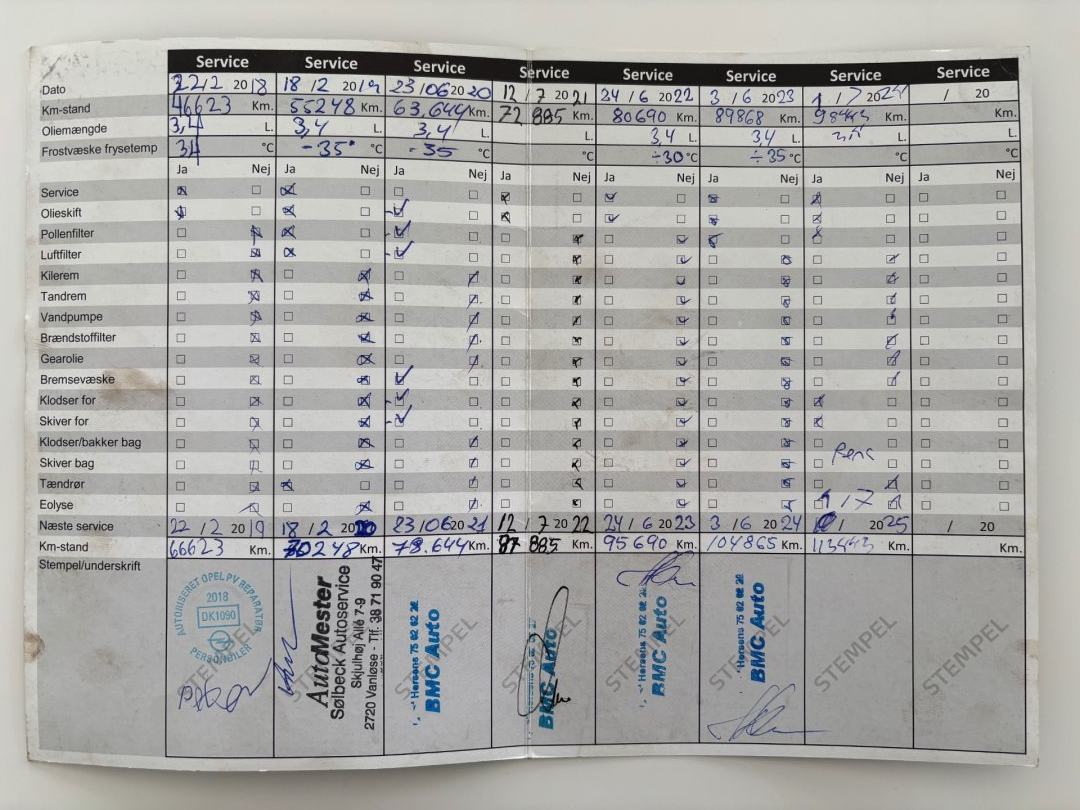 Service Service Service Service Service Service Service Service
Dato 22/2 2018 18 12 2019 23/06 2020 12/7 2021 24/6 2022 3/6 2023 1/7 2024 / 20
Km-stand 46623 Km. 55248 Km. 63.644 Km. 72 885 Km. 80690 Km. 89868 Km. Km. Km.
Oliemængde 3,4 L. 3,4 L. 3,4 L. L. 3,4 L. 3,4 L. L. L.
Frostvæske frysetemp 34 °C -35° °C -35 °C °C ÷30 °C ÷35 °C °C °C
Ja Nej Ja Nej Ja Nej Ja Nej Ja Nej Ja Nej Ja Nej Ja Nej
Service
Olieskift
Pollenfilter
Luftfilter
Kilerem
Tandrem
Vandpumpe
Brændstoffilter
Gearolie
Bremsevæske
Klodser for
Skiver for
Klodser/bakker bag
Skiver bag
Tændrør
Eolyse
Næste service 22/2 2019 18/2 20 23/06 2021 12/7 2022 24/6 2023 3/6 2024 / 2025 / 20
Km-stand 66623 Km. 70248 Km. 78.644 Km. 87 885 Km. 95690 Km. 104865 Km. 113443 Km. Km.
Stempel/underskrift
AUTORISERET OPEL PV REPARATØR
2018
DK1090
PERSONBILER
STEMPEL
AutoMester
Sølbeck Autoservice
Skjulhøj Allé 7-9
2720 Vanløse - Tlf. 38 71 90 47
STEMPEL
Horsens 75 62 62 22
BMC Auto
STEMPEL
BMC Auto
STEMPEL
Horsens 75 62 62 22
BMC Auto
STEMPEL
Horsens 75 62 62 22
BMC Auto
STEMPEL
STEMPEL
STEMPEL